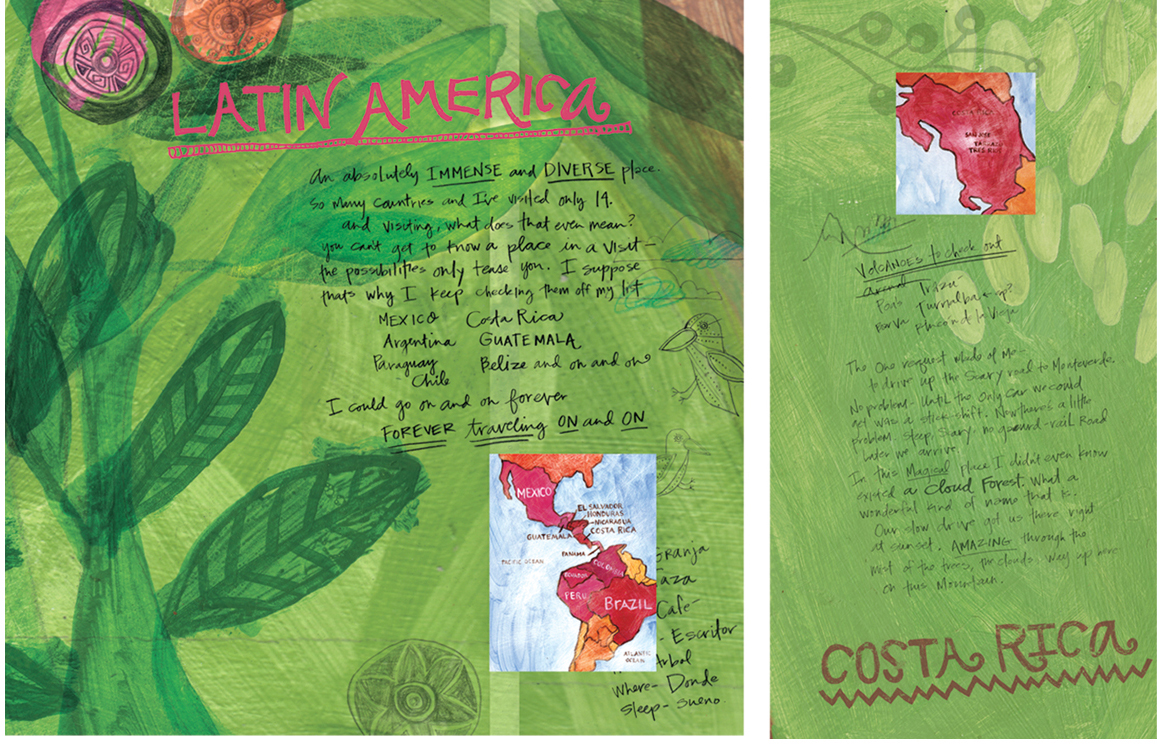 LATIN AMERICA
An absolutely IMMENSE and DIVERSE place.
So many countries and I've visited only 14.
and visiting, what does that even mean?
you can't get to know a place in a visit-
the possibilities only tease you. I suppose
thats why I keep checking them off my list
MEXICO Costa Rica
Argentina GUATEMALA
Paraguay Belize and on and on
Chile
I could go on and on forever
FOREVER traveling ON and ON
MEXICO
EL SALVADOR
HONDURAS
NICARAGUA
COSTA RICA
GUATEMALA
PANAMA
PACIFIC OCEAN
COLOMBIA
ECUADOR
PERU
BRAZIL
ATLANTIC
OCEAN
Granja
aza
Cafe-
- Escritor
Arbol
Where- Donde
Sleep- Sueno
COSTA RICA
SAN JOSE
TRES RIOS
VOLCANOES to check out
Arenal Irazu
Poas Turrialba
Barva
The One request made of Me-
to drive up the Scary road to Monteverde.
No problem- Until the only car we could
get was a stick-shift. Now there's a little
problem. Steep, Scary, no guard-rail Road
Later we arrive.
In this Magical place I didn't even know
existed a Cloud Forest. What a
wonderful kind of name that is.
Our slow drive got us there right
at sunset. AMAZING through the
mist of the trees, the clouds, way up here
on this Mountain.
COSTA RICA